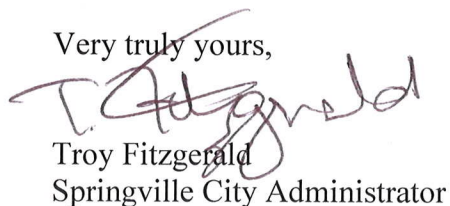 Very truly yours,
T. Fitzgerald
Troy Fitzgerald
Springville City Administrator